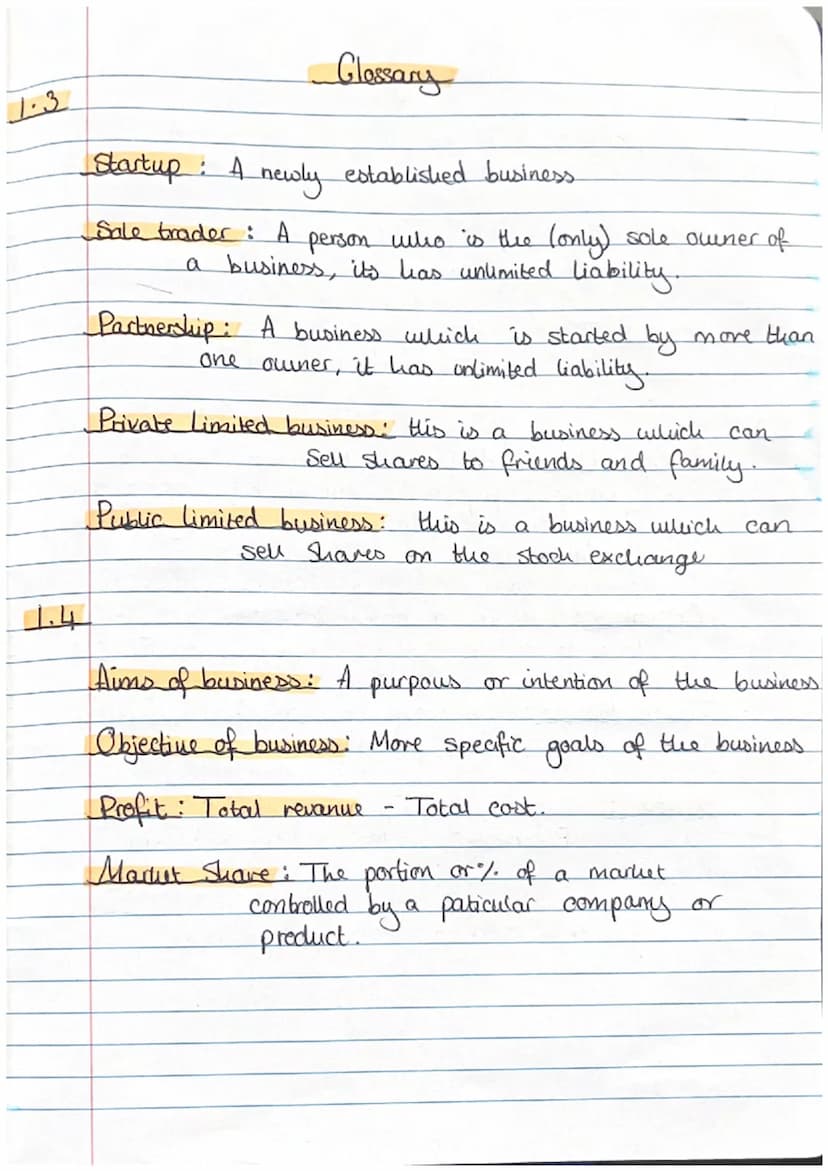 Glossary
1.3
Startup : A newly established business
Sole trader : A person who is the (only) sole owner of
a business, its has unlimited liability.
Partnership : A business which is started by more than
one owner, it has unlimited liability.
Private Limited business: this is a business which can
sell shares to friends and family.
Public limited business: this is a business which can
sell shares on the stock exchange
1.4
Aims of business: A purpous or intention of the business
Objective of business: More specific goals of the business
Profit : Total revanue - Total cost.
Market Share : The portion or % of a market
controlled by a paticular company or
product.